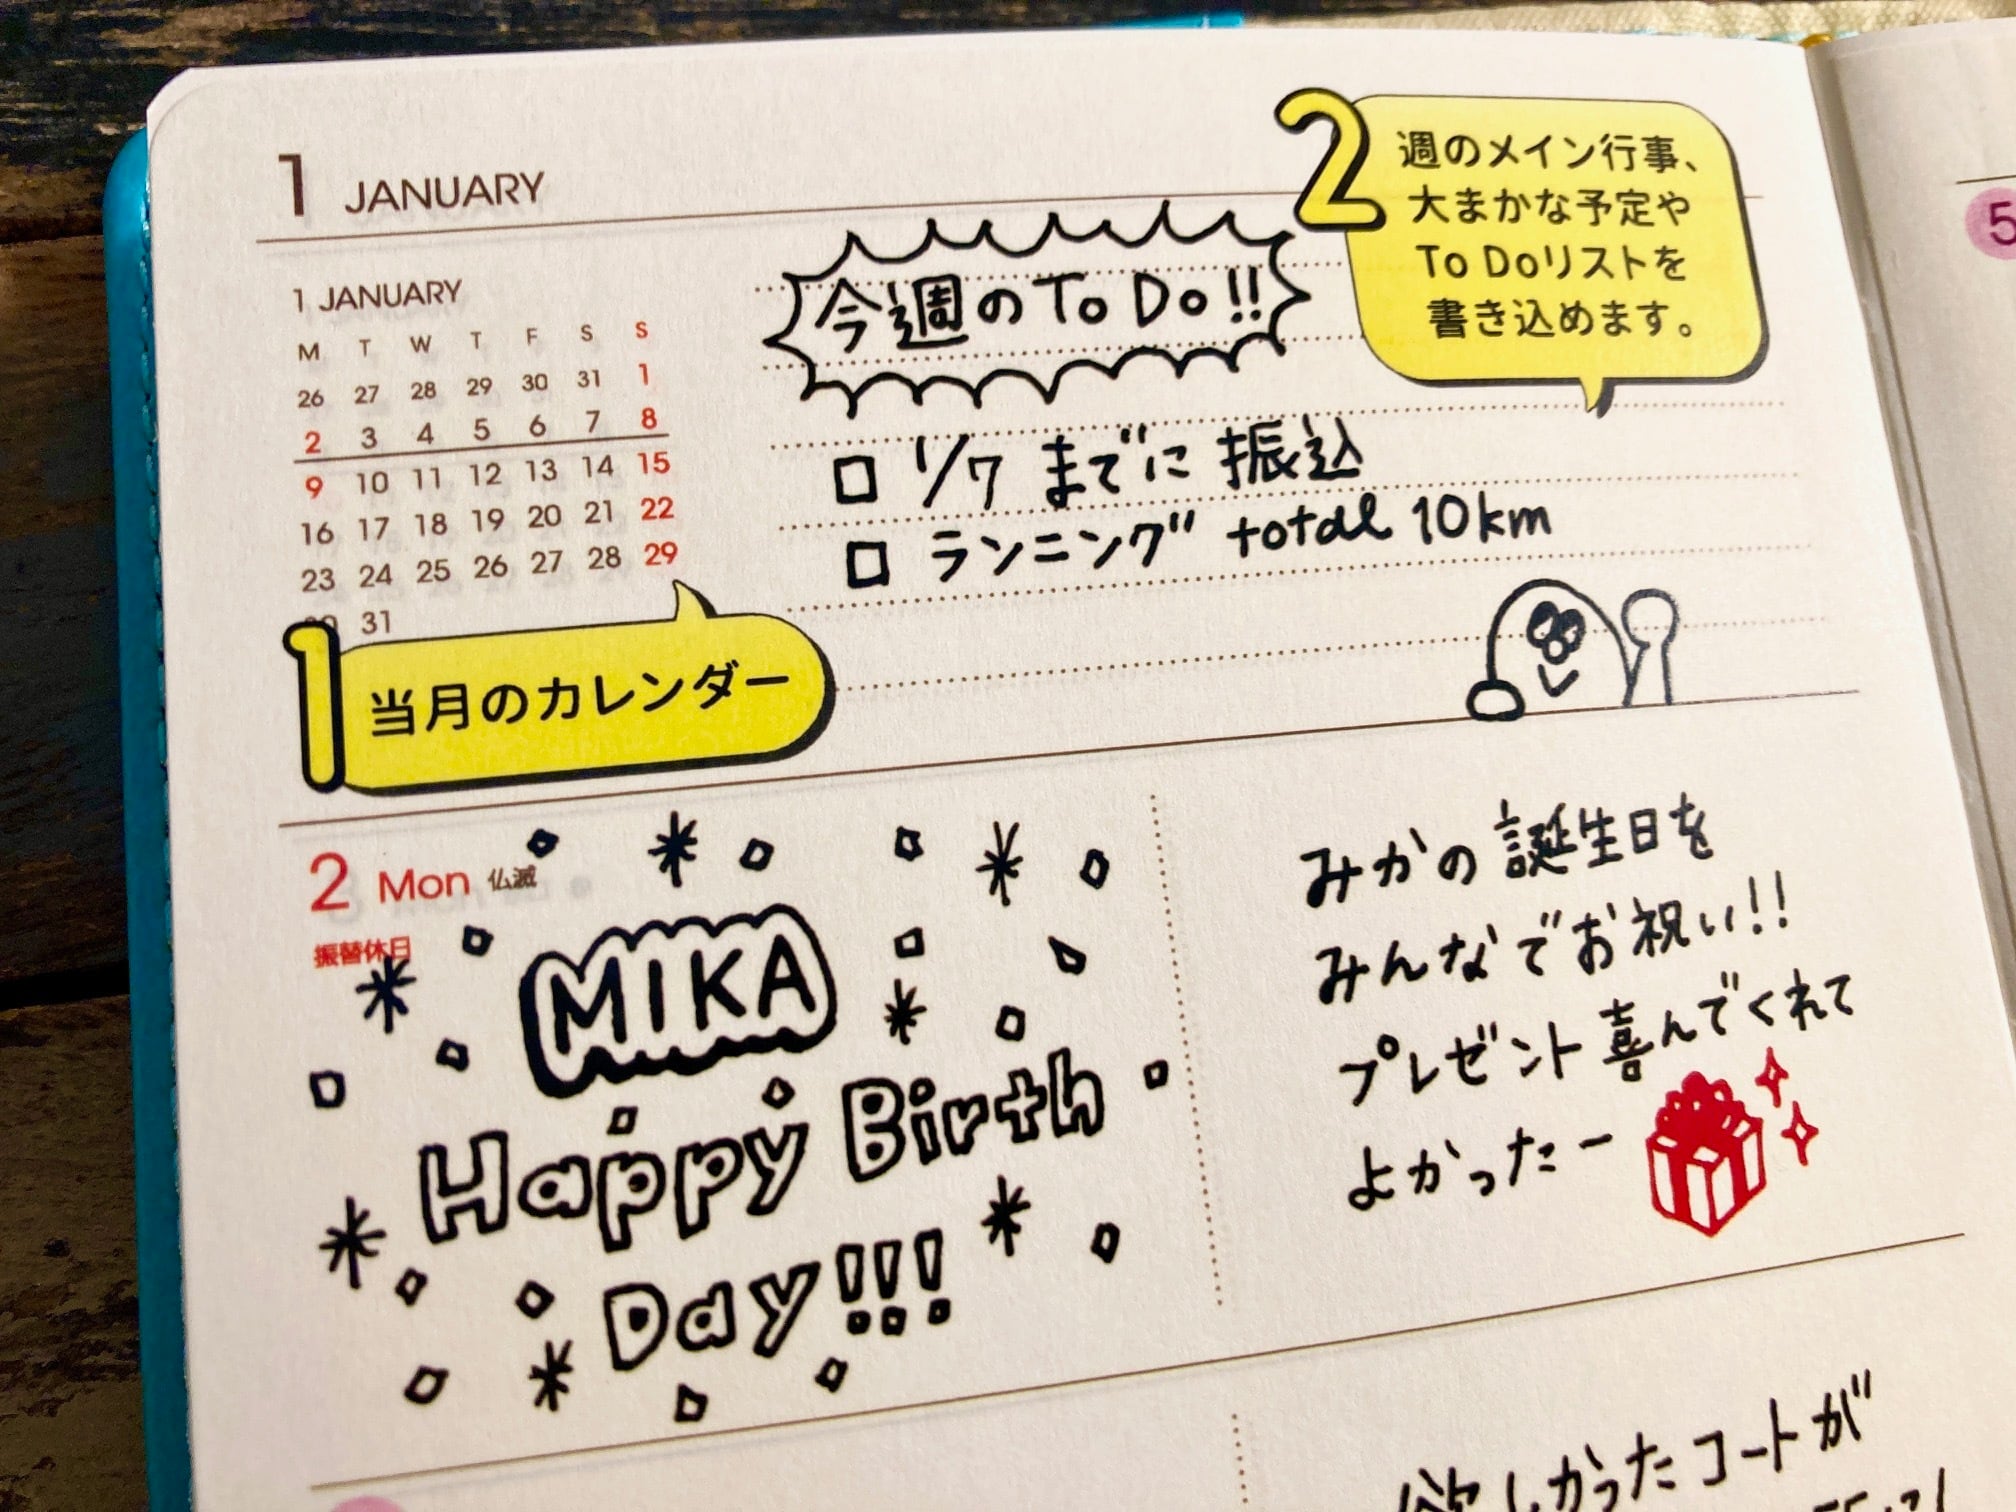 1 JANUARY
1 JANUARY
M T W T F S S
26 27 28 29 30 31 1
2 3 4 5 6 7 8
9 10 11 12 13 14 15
16 17 18 19 20 21 22
23 24 25 26 27 28 29
31
1 当月のカレンダー
今週の To Do!!
2 週のメイン行事、
大まかな予定や
To Doリストを
書き込めます。
□ 1/7 までに 振込
□ ランニング total 10km
2 Mon 仏滅
振替休日
MIKA
Happy Birth
Day!!!
みかの誕生日を
みんなでお祝い!!
プレゼント喜んでくれて
よかったー
欲しかったコートが
5